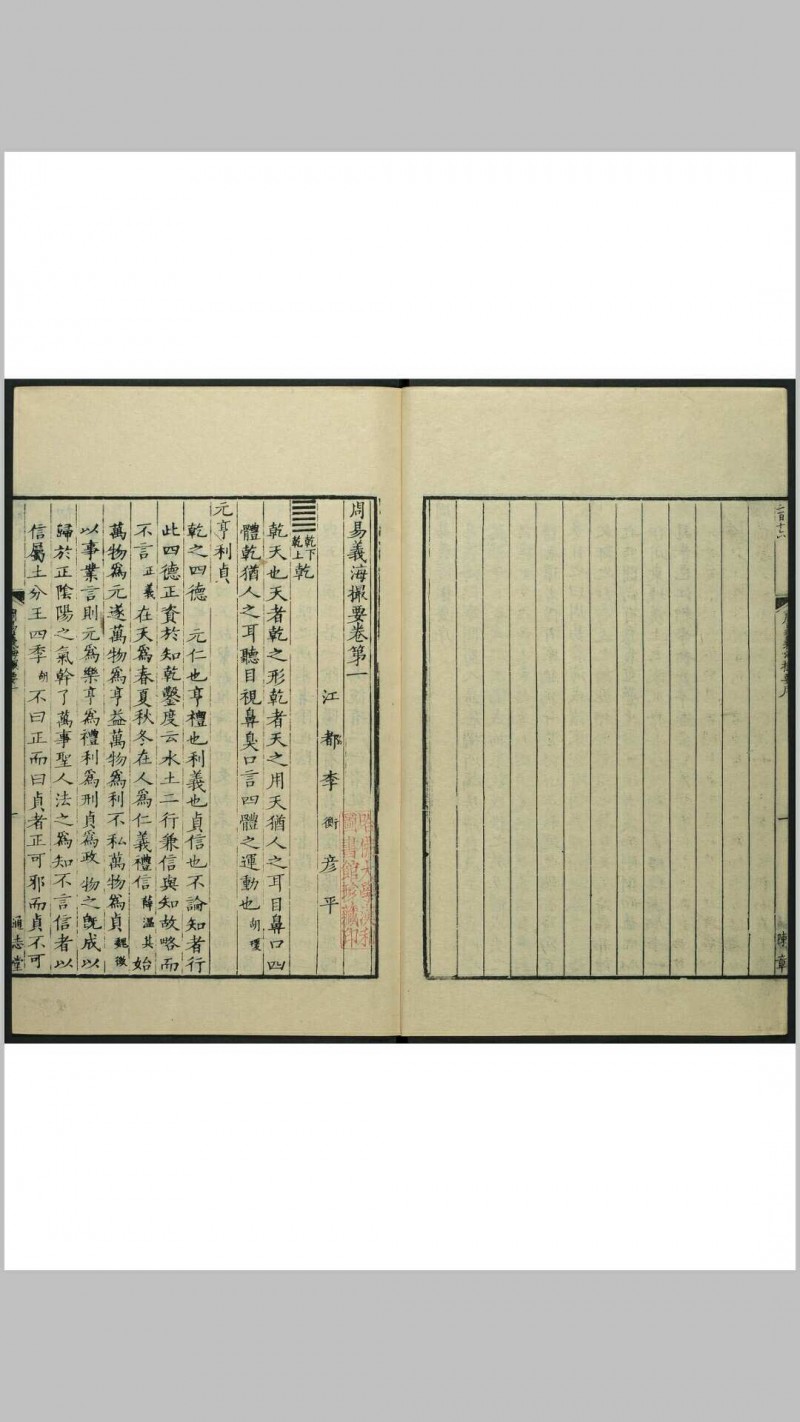 陳章
周易義海撮要卷第一
江都李衡彦平
乾下乾上乾
乾天也天者乾之形乾者天之用天猶人之耳目鼻口四
體乾猶人之耳聽目視鼻臭口言四體之運動也胡瑗
元亨利貞
乾之四德 元仁也亨禮也利義也貞信也不論知者行
此四德正資於知乾鑿度云水土二行兼信與知故略而
不言正義在天爲春夏秋冬在人爲仁義禮信薛溫其始
萬物爲元遂萬物爲亨益萬物爲利不私萬物爲貞魏徵
以事業言則元爲樂亨爲禮利爲刑貞爲政 物之旣成以
歸於正陰陽之氣幹了萬事聖人法之爲知不言信者以
信屬土分王四季胡不曰正而曰貞者正可邪而貞不可
通志堂